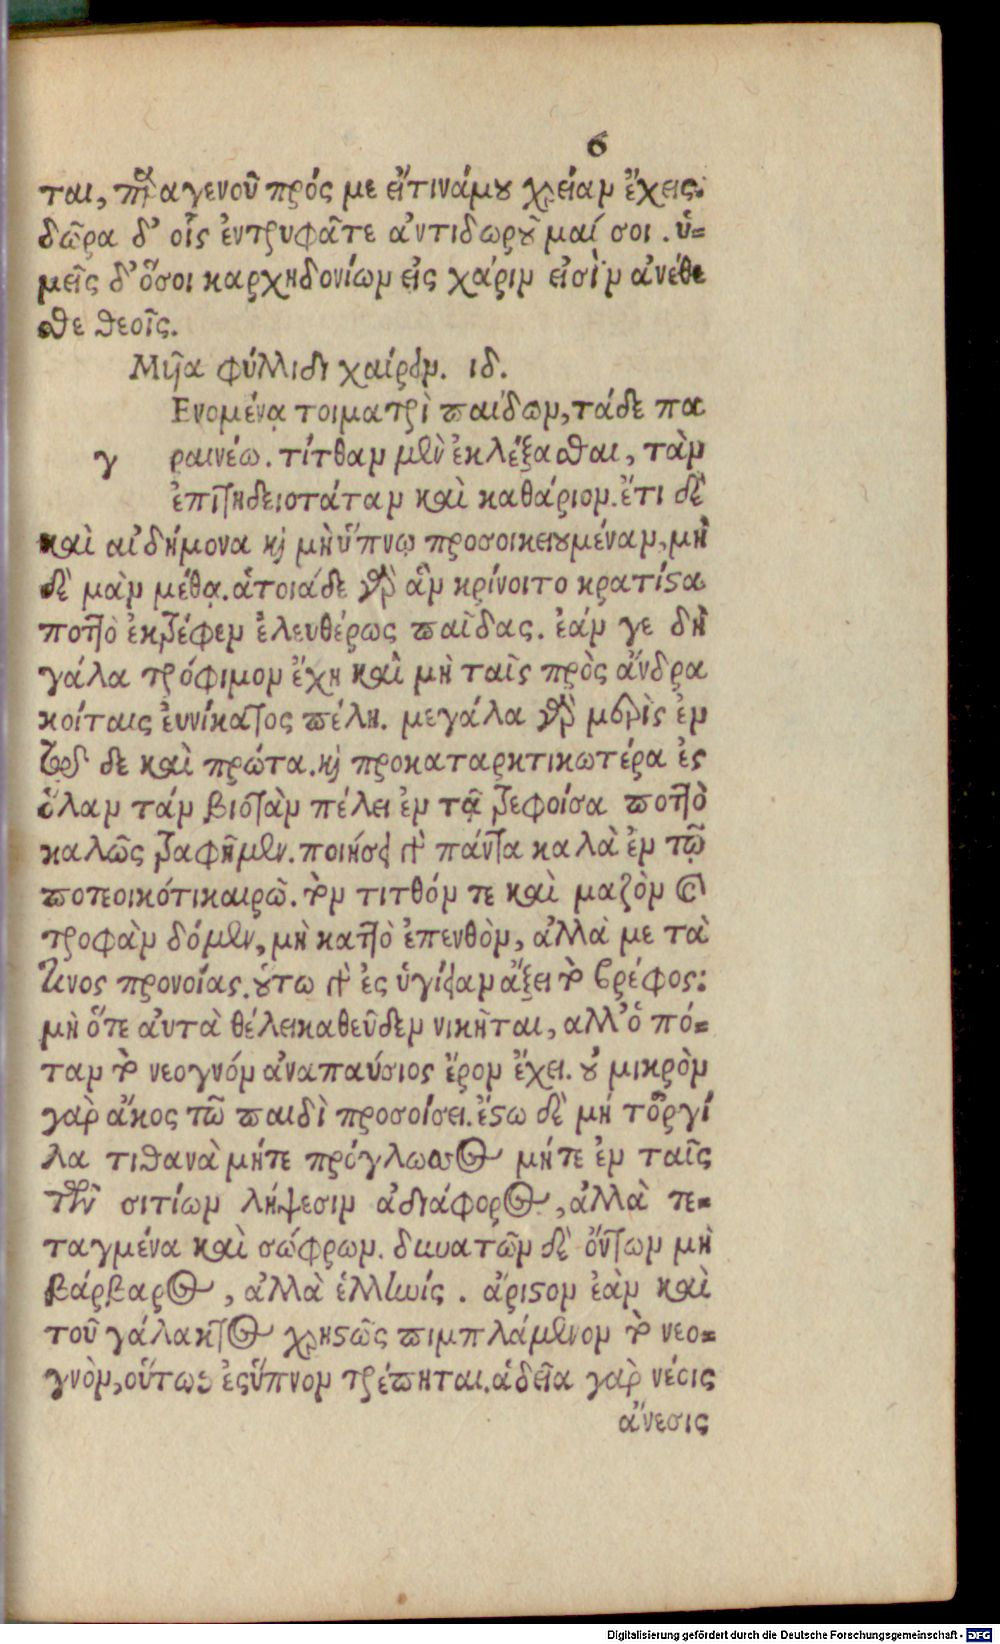 6
ται, παραγενοῦ πρός με εἴ τινά μου χρείαν ἔχεις·
δῶρα δ' οἷς ἐντρυφᾶτε ἀντιδωροῦμαί σοι. ὑ-
μεῖς δ' ὅσοι καρχηδονίων εἰς χάριν εἰσὶν ἀνέθε
σθε θεοῖς.
Μυῖα φύλλιδι χαίρειν. ιδ.
Ενομένᾳ τοι ματρὶ παίδων, τάδε πα
γ ραινέω. τίτθαν μὲν ἐκλέξασθαι, τὰν
ἐπιτηδειοτάταν καὶ καθάριον. ἔτι δὲ
καὶ αἰδήμονα καὶ μὴ ὕπνῳ προσοικειουμέναν, μὴ
δὲ μὰν μέθᾳ. ἁ τοιάδε γὰρ ἂν κρίνοιτο κρατίστα
ποττὸ ἐκτρέφεν ἐλευθέρως παῖδας. ἐάν γε δὴ
γάλα τρόφιμον ἔχῃ καὶ μὴ ταῖς πρὸς ἄνδρα
κοίταις εὐνίκατος πέλῃ. μεγάλα γὰρ μερὶς ἐν
τῷδε καὶ πρώτα. καὶ προκαταρκτικωτέρα ἐς
ὅλαν τάν βιοτὰν πέλει ἐν τᾷ τρεφοίσα ποττὸ
καλῶς τραφῆμεν. ποιήσει γὰρ πάντα καλὰ ἐν τῷ
ποτεοικότι καιρῷ. τὸν τιτθόν τε καὶ μαζὸν καὶ
τροφὰν δόμεν, μὴ καττὸ ἐπενθὸν, ἀλλὰ μετὰ
τινος προνοίας. οὕτω γὰρ ἐς ὑγίειαν ἄξει τὸ βρέφος:
μὴ ὅτε αὐτὰ θέλει καθεῦδεν νικῆται, αλλ' ὁ πό-
ταν τὸ νεογνόν ἀναπαύσιος ἔρον ἔχει. οὐ μικρὸν
γαρ ἄκος τῷ παιδὶ προσοίσει. ἔστω δὲ μὴ τ' ὀργί
λα τιθανὰ μήτε πρόγλωσσος μήτε ἐν ταῖς
τῶν σιτίων λήψεσιν ἀδιάφορος, ἀλλὰ τε-
ταγμένα καὶ σώφρων. δυνατῶν δὲ ὄντων μὴ
βάρβαρος, ἀλλὰ ἑλληνίς. ἄριστον ἐὰν καὶ
τοῦ γάλακτος χρηστῶς πιμπλάμενον τὸ νεο-
γνὸν, οὕτως ἐς ὕπνον τρέπηται. ἁδεῖα γὰρ νέοις
ἄνεσις
Digitalisierung gefördert durch die Deutsche Forschungsgemeinschaft - DFG